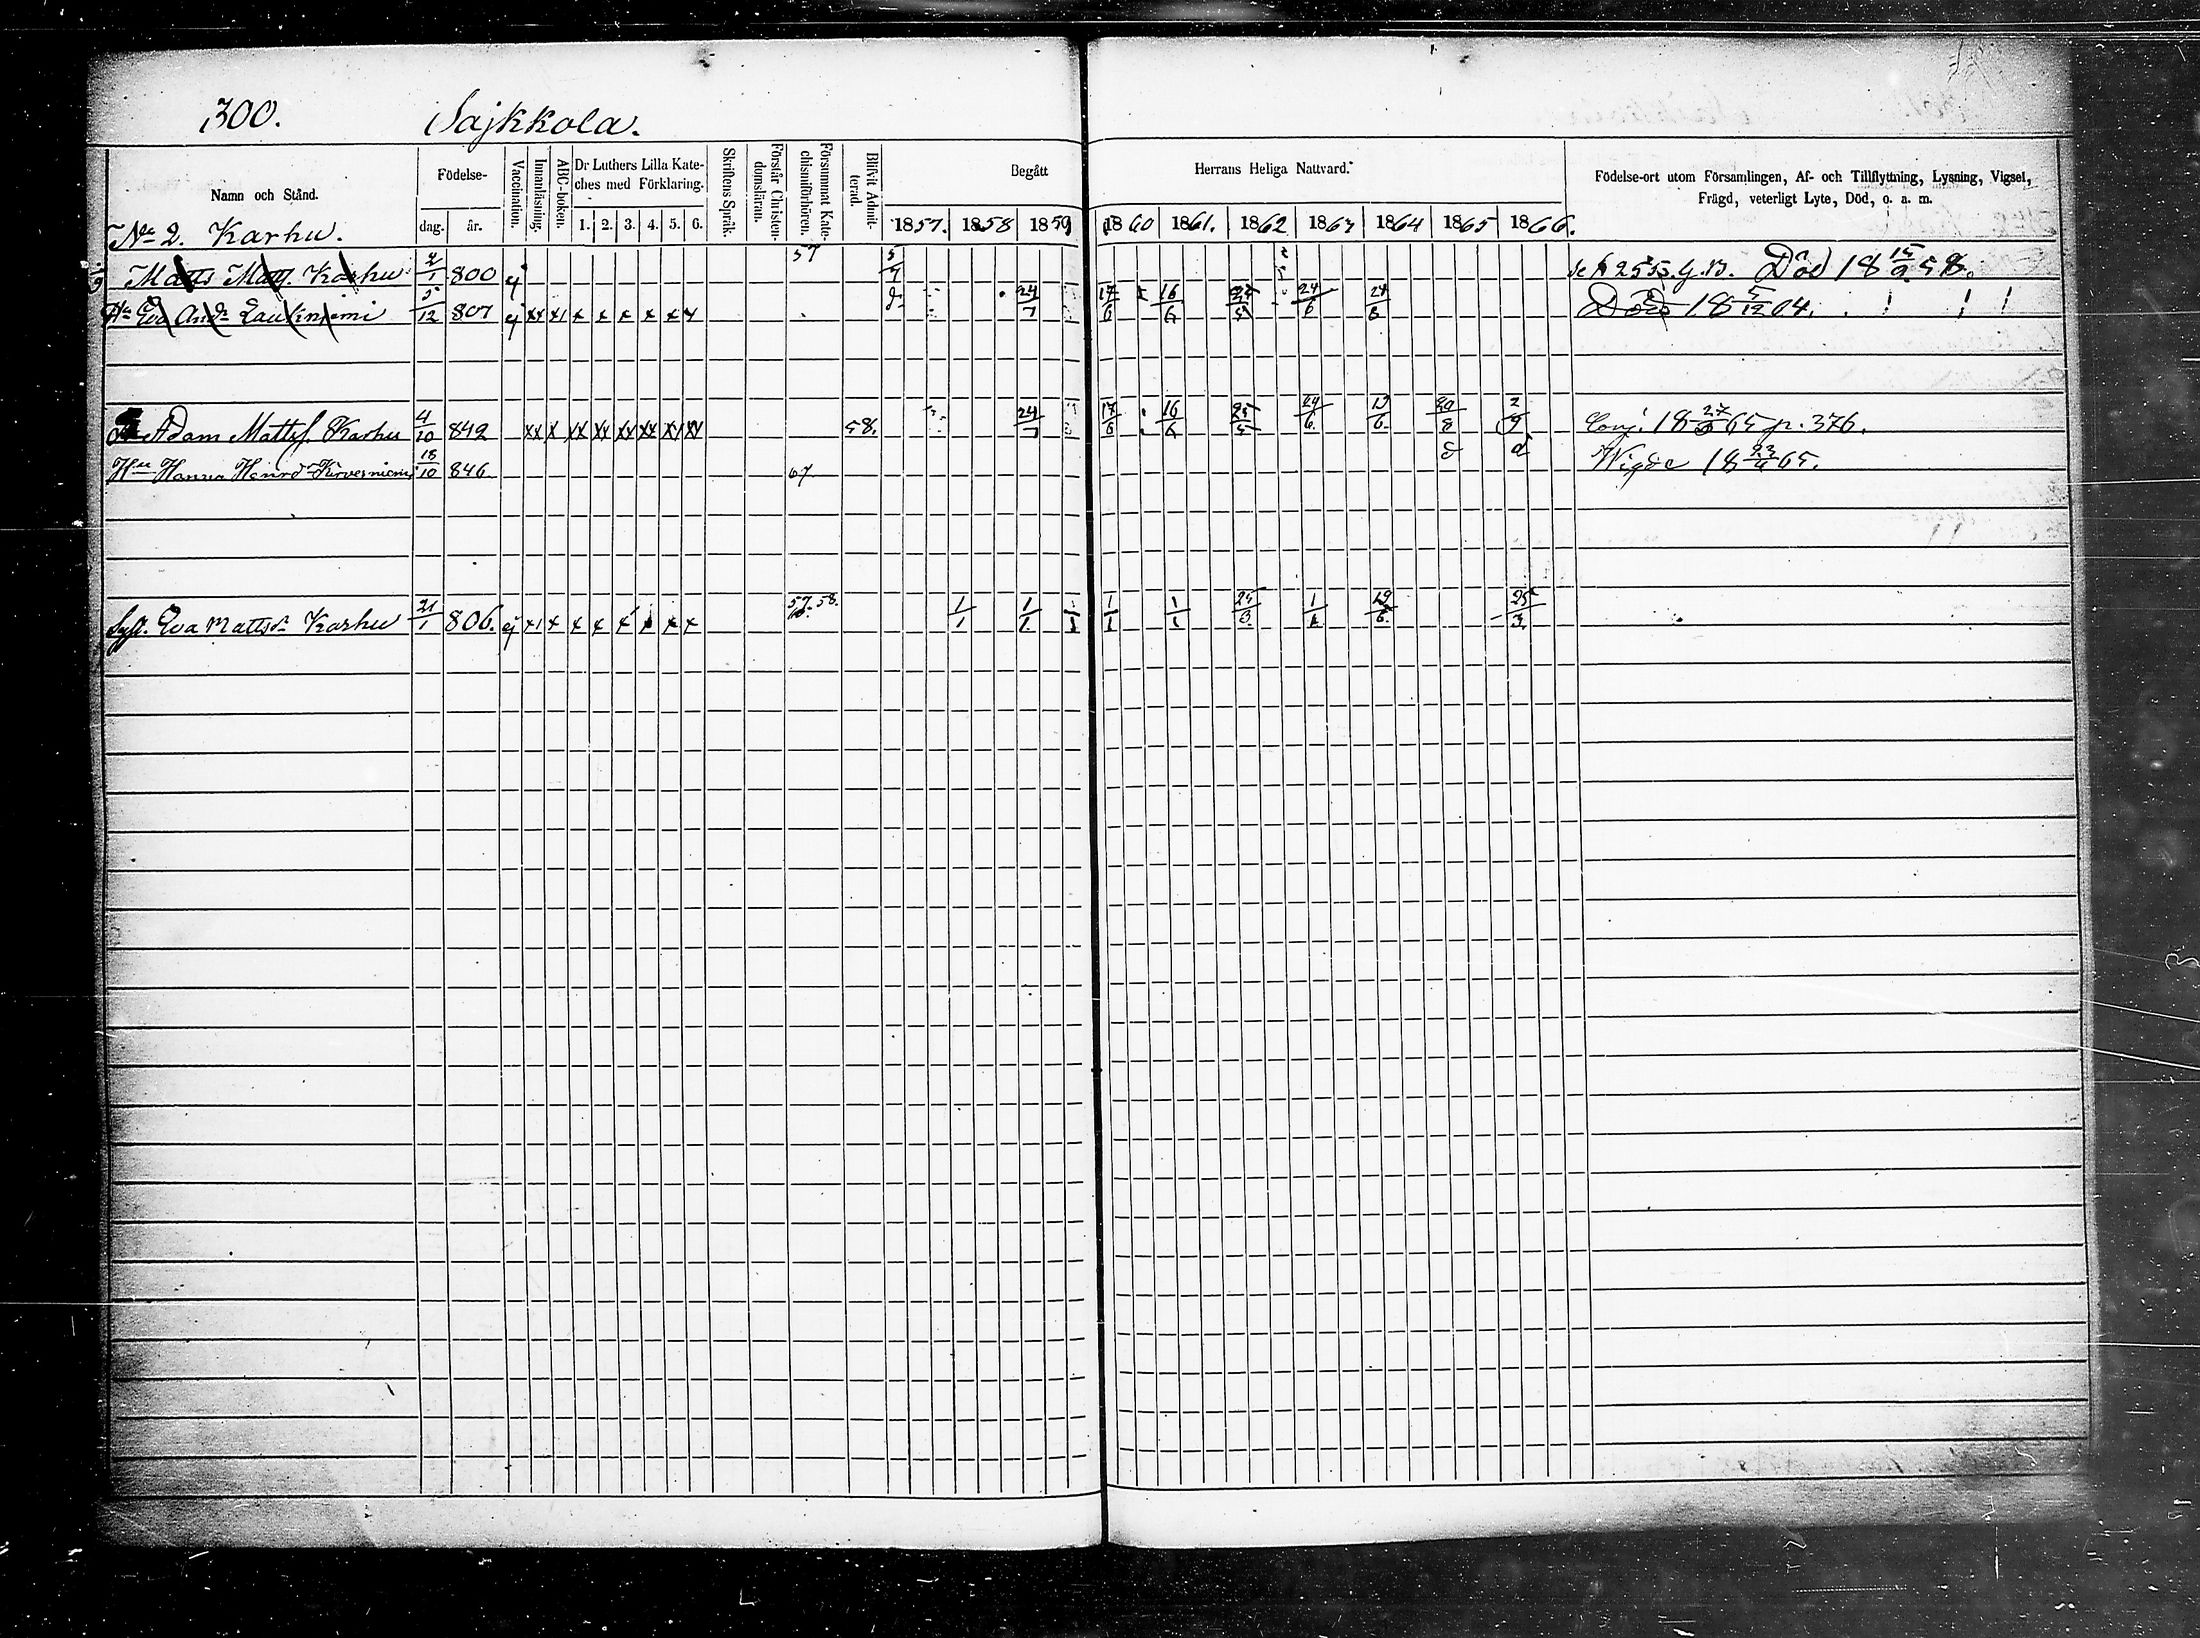 300. Sajkkola.
Namn och Stånd.
Födelse-
dag. år.
Vaccination.
Innanläsning.
ABC-boken.
Dr Luthers Lilla Kate-
ches med Förklaring.
1. 2. 3. 4. 5. 6.
Skriftens Språk.
Förstår Christen-
domsläran.
Försummat Kate-
chismiförhören.
Blifvit Admit-
terad.
Begått Herrans Heliga Nattvard.
1857. 1858 1859 1860 1861. 1862 1863 1864 1865 1866.
Födelse-ort utom Församlingen, Af- och Tillflyttning, Lysning, Vigsel,
Frägd, veterligt Lyte, Död, o. a. m.
No 2. Karhu.
Matts Matts. Karhu 2/1 800 ej 57 5/7 Död 18 15/9 58.
Hu Eva And:dr Laukniemi 5/12 807 ej xx x1 x x x x x x 24/7 17/6 16/6 24/6 24/6 Död 18 5/12 64.
Adam Matts. Karhu 4/10 842 xx x xx xx xx xx x1 xx 58. 24/7 17/6 16/6 24/6 19/6 20/8 2/9 Conj. 18 65 p. 376.
Hu Hanna Henr:dr Kirvesniemi 18/10 846 67 Vigde 18 65.
Syst. Eva Matts:dr Karhu 21/1 806. ej x1 x x x x x x x 57. 58. 1/1 1/1 1/1 1/1 1/1 25/3 1/1 19/6 25/3